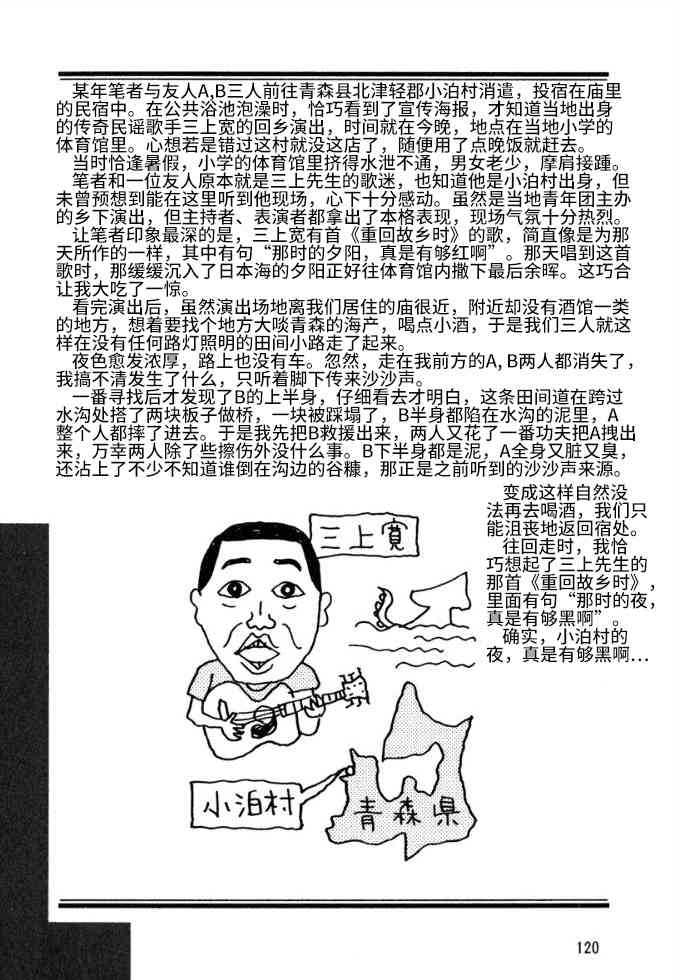 某年笔者与友人A,B三人前往青森县北津轻郡小泊村消遣，投宿在庙里
的民宿中。在公共浴池泡澡时，恰巧看到了宣传海报，才知道当地出身
的传奇民谣歌手三上宽的回乡演出，时间就在今晚，地点在当地小学的
体育馆里。心想若是错过这村就没这店了，随便用了点晚饭就赶去。
当时恰逢暑假，小学的体育馆里挤得水泄不通，男女老少，摩肩接踵。
笔者和一位友人原本就是三上先生的歌迷，也知道他是小泊村出身，但
未曾预想到能在这里听到他现场，心下十分感动。虽然是当地青年团主办
的乡下演出，但主持者、表演者都拿出了本格表现，现场气氛十分热烈。
让笔者印象最深的是，三上宽有首《重回故乡时》的歌，简直像是为那
天所作的一样，其中有句“那时的夕阳，真是有够红啊”。那天唱到这首
歌时，那缓缓沉入了日本海的夕阳正好往体育馆内撒下最后余晖。这巧合
让我大吃了一惊。
看完演出后，虽然演出场地离我们居住的庙很近，附近却没有酒馆一类
的地方，想着要找个地方大啖青森的海产，喝点小酒，于是我们三人就这
样在没有任何路灯照明的田间小路走了起来。
夜色愈发浓厚，路上也没有车。忽然，走在我前方的A,B两人都消失了，
我搞不清发生了什么，只听着脚下传来沙沙声。
一番寻找后才发现了B的上半身，仔细看去才明白，这条田间道在跨过
水沟处搭了两块板子做桥，一块被踩塌了，B半身都陷在水沟的泥里，A
整个人都摔了进去。于是我先把B救援出来，两人又花了一番功夫把A拽出
来，万幸两人除了些擦伤外没什么事。B下半身都是泥，A全身又脏又臭，
还沾上了不少不知道谁倒在沟边的谷糠，那正是之前听到的沙沙声来源。
变成这样自然没
法再去喝酒，我们只
能沮丧地返回宿处。
往回走时，我恰
巧想起了三上先生的
那首《重回故乡时》，
里面有句“那时的夜，
真是有够黑啊”。
确实，小泊村的
夜，真是有够黑啊…
三上寛
小泊村
青森県
120